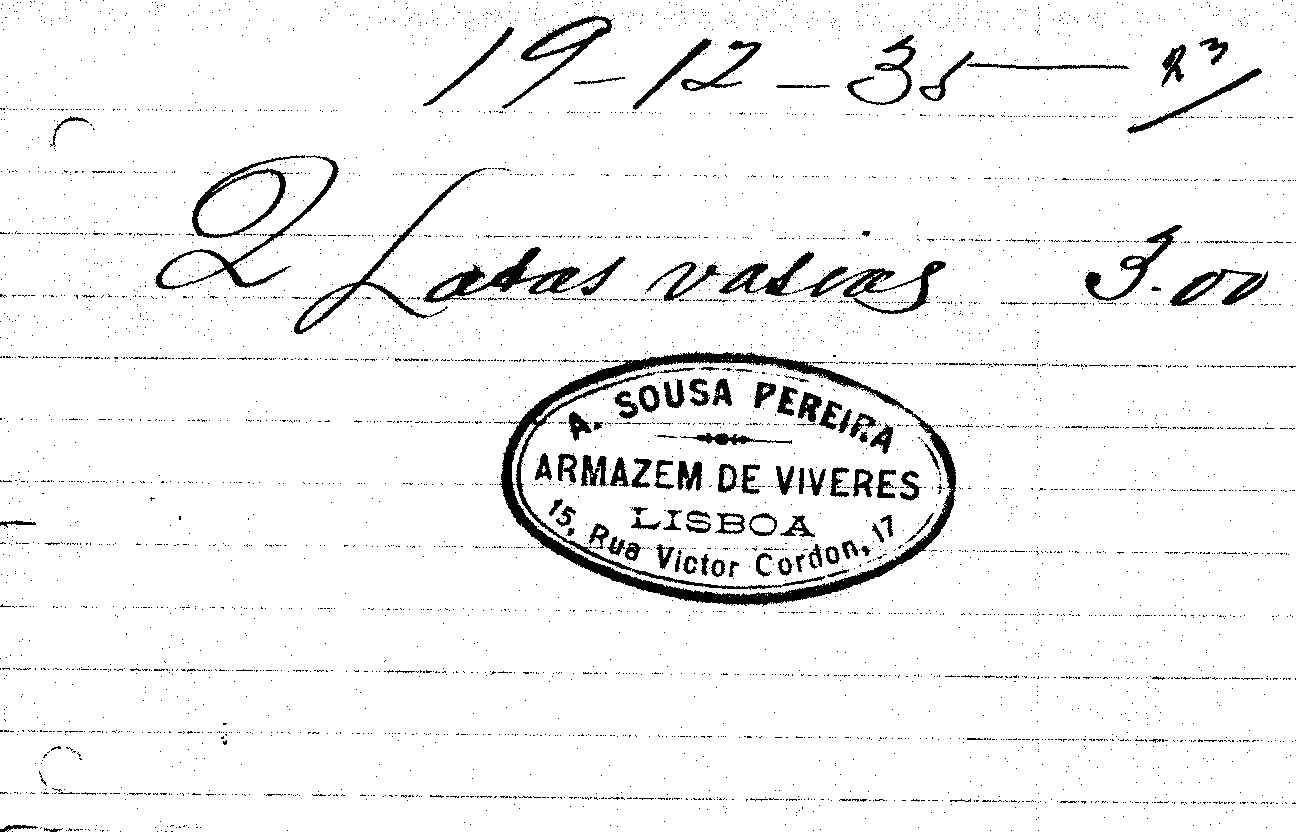 19-12-35
2 Latas vasias 3.00
A. SOUSA PEREIRA
ARMAZEM DE VIVERES
LISBOA
15, Rua Victor Cordon, 17